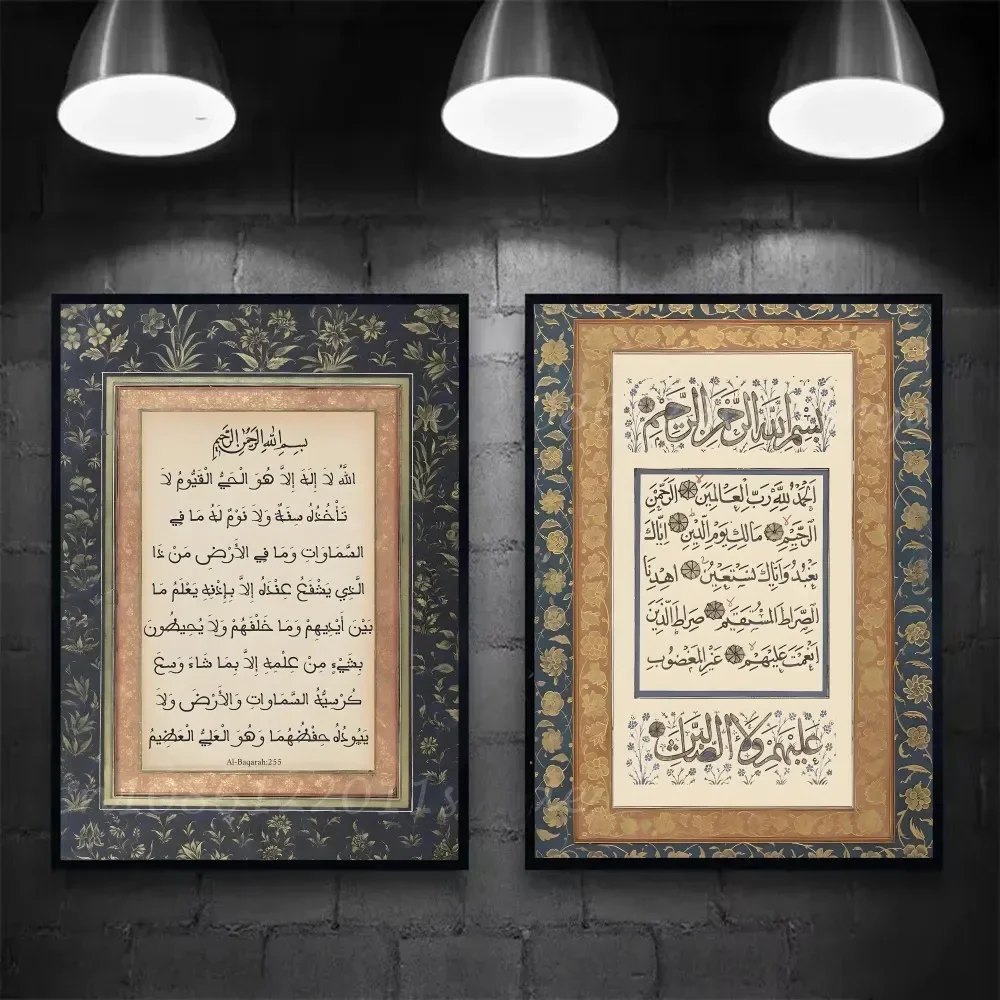 بسم الله الرحمن الرحيم
اللَّهُ لَا إِلَهَ إِلَّا هُوَ الْحَيُّ الْقَيُّومُ لَا
تَأْخُذُهُ سِنَةٌ وَلَا نَوْمٌ لَهُ مَا فِي
السَّمَاوَاتِ وَمَا فِي الْأَرْضِ مَنْ ذَا
الَّذِي يَشْفَعُ عِنْدَهُ إِلَّا بِإِذْنِهِ يَعْلَمُ مَا
بَيْنَ أَيْدِيهِمْ وَمَا خَلْفَهُمْ وَلَا يُحِيطُونَ
بِشَيْءٍ مِنْ عِلْمِهِ إِلَّا بِمَا شَاءَ وَسِعَ
كُرْسِيُّهُ السَّمَاوَاتِ وَالْأَرْضَ وَلَا
يَئُودُهُ حِفْظُهُمَا وَهُوَ الْعَلِيُّ الْعَظِيمُ
Al-Baqarah:255
بِسْمِ اللَّهِ الرَّحْمَنِ الرَّحِيمِ
الْحَمْدُ لِلَّهِ رَبِّ الْعَالَمِينَ الرَّحْمَنِ
الرَّحِيمِ مَالِكِ يَوْمِ الدِّينِ إِيَّاكَ
نَعْبُدُ وَإِيَّاكَ نَسْتَعِينُ اهْدِنَا
الصِّرَاطَ الْمُسْتَقِيمَ صِرَاطَ الَّذِينَ
أَنْعَمْتَ عَلَيْهِمْ غَيْرِ الْمَغْضُوبِ
عَلَيْهِمْ وَلَا